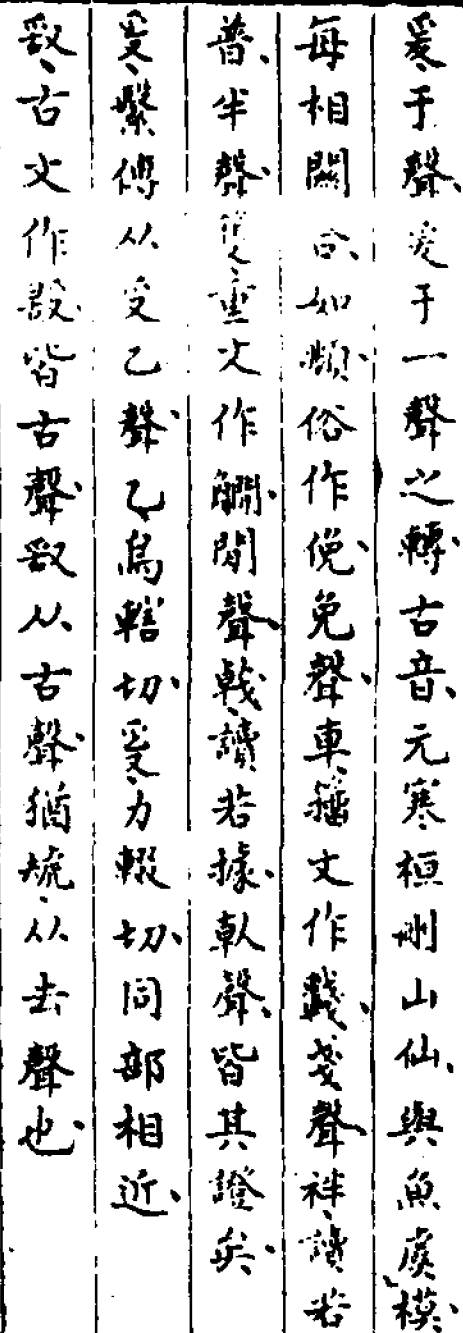 爰、于聲、爰于一聲之轉、古音、元寒桓刪山仙、與魚虞模、
每相關合、如頫、俗作俛、免聲、車、籀文作𨏖、戔聲、袢、讀若
普、半聲、雙、重文作觸、閒聲、戟、讀若據、倝聲、皆其證矣、
𤔫、繫傳从𠬪乙聲、乙烏轄切、𤔫、力輟切、同部相近、
𠭖、古文作𣪏、皆古聲、𠭖从古聲、猶𧠍、从去聲也、